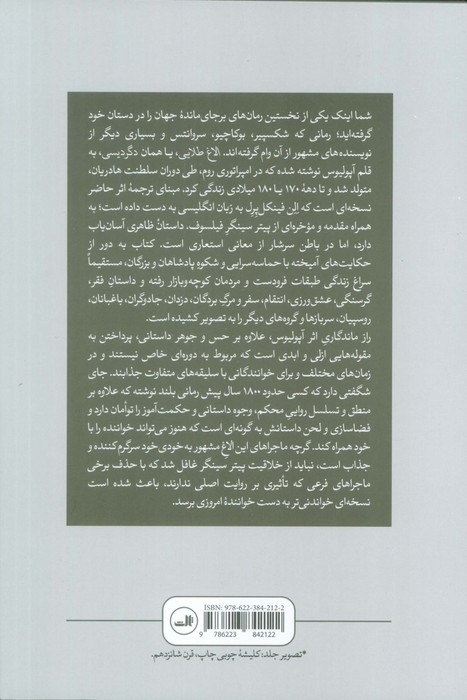 شما اینک یکی از نخستین رمان‌های برجای‌ماندهٔ جهان را در دستان خود
گرفته‌اید؛ رمانی که شکسپیر، بوکاچیو، سروانتس و بسیاری دیگر از
نویسنده‌های مشهور از آن وام گرفته‌اند. الاغ طلایی، یا همان دگردیسی، به
قلم آپولیوس نوشته شده که در امپراتوری روم، طی دوران سلطنت هادریان،
متولد شد و تا دههٔ ۱۷۰ یا ۱۸۰ میلادی زندگی کرد. مبنای ترجمهٔ اثر حاضر
نسخه‌ای است که اِلن فینکل‌پِرل به زبان انگلیسی به دست داده است؛ به
همراه مقدمه و مؤخره‌ای از پیتر سینگرِ فیلسوف. داستانْ ظاهری آسان‌یاب
دارد، اما در باطن سرشار از معانی استعاری است. کتاب به دور از
حکایت‌های آمیخته با حماسه‌سرایی و شکوهِ پادشاهان و بزرگان، مستقیماً
سراغ زندگی طبقات فرودست و مردمان کوچه‌وبازار رفته و داستانِ فقر،
گرسنگی، عشق‌ورزی، انتقام، سفر و مرگِ بردگان، دزدان، جادوگران، باغبانان،
روسپیان، سربازها و گروه‌های دیگر را به تصویر کشیده است.
راز ماندگاریِ اثر آپولیوس، علاوه بر حس و جوهر داستانی، پرداختن به
مقوله‌هایی ازلی و ابدی است که مربوط به دوره‌ای خاص نیستند و در
زمان‌های مختلف و برای خوانندگانی با سلیقه‌های متفاوت جذابند. جای
شگفتی دارد که کسی حدود ۱۸۰۰ سال پیش رمانی بلند نوشته که علاوه بر
منطق و تسلسل رواییِ محکم، وجوه داستانی و حکمت‌آموز را توأمان دارد و
فضاسازی و لحن داستانش به گونه‌ای است که هنوز می‌تواند خواننده را با
خود همراه کند. گرچه ماجراهای این الاغ مشهور به‌خودی‌خود سرگرم‌کننده و
جذاب است، نباید از خلاقیت پیتر سینگر غافل شد که با حذف برخی
ماجراهای فرعی که تأثیری بر روایت اصلی ندارند، باعث شده است
نسخه‌ای خواندنی‌تر به دست خوانندهٔ امروزی برسد.
ISBN: 978-622-384-212-2
9 786223 842122
ثالث
*تصویر جلد: کلیشهٔ چوبی چاپ، قرن شانزدهم.